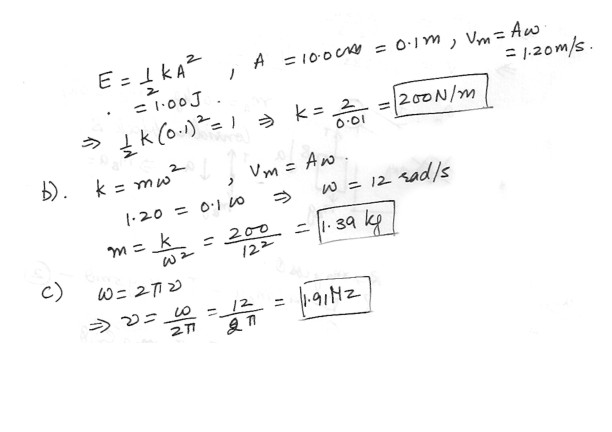 E = 1/2 kA² , A = 10.0 cm = 0.1m , Vm = Aω
= 1.00J . = 1.20m/s.
⇒ 1/2 k(0.1)² = 1 ⇒ k = 2/0.01 = 200N/m
b). k = mω² , Vm = Aω .
1.20 = 0.1ω ⇒ ω = 12 rad/s
m = k/ω² = 200/12² = 1.39 kg
c) ω = 2πν
⇒ ν = ω/2π = 12/2π = 1.91Hz